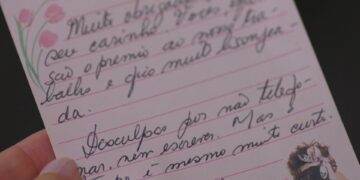 Muito obrigada
seu carinho. Vocês
são o premio ao nosso tra-
balho e fico muito lisonjea-
da.
Desculpas por não telefo-
nar, nem escrever. Mas
é mesmo muito curto.